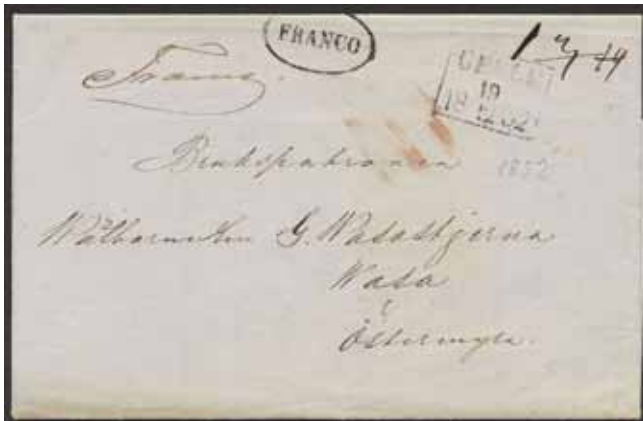 FRANCO
Franco.
19
1852
Brukspatronen
Wälborne Herr G. Wasastjerna
Wasa
Östermyra.